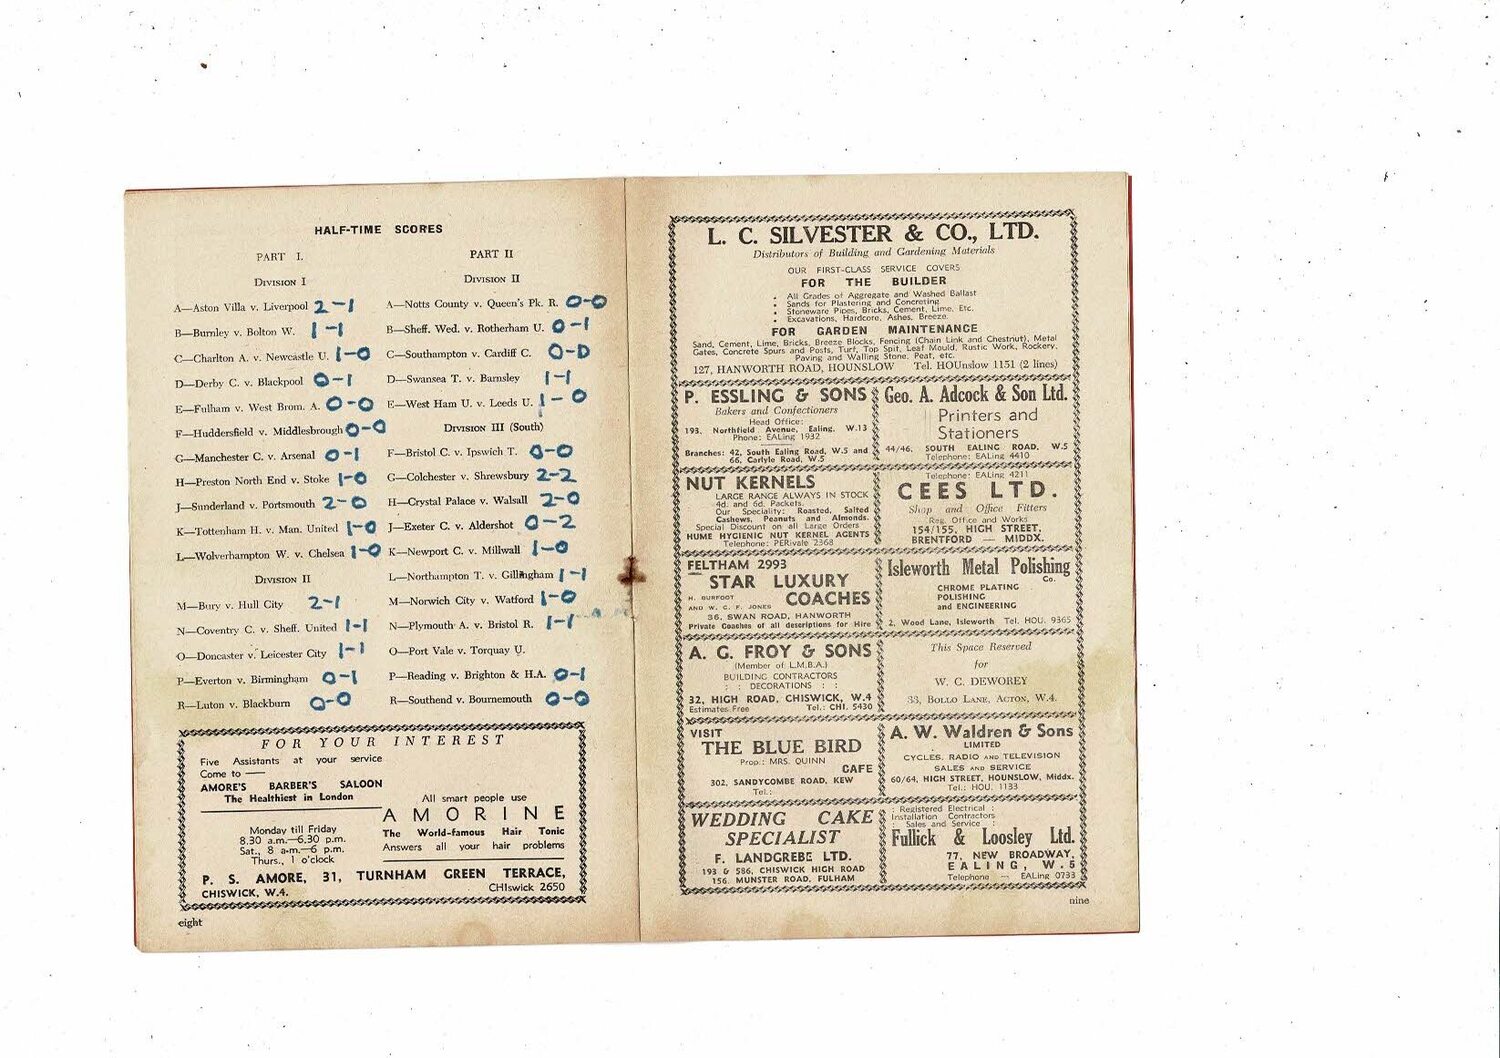 HALF-TIME SCORES
PART I.
DIVISION I
A—Aston Villa v. Liverpool 2-1
B—Burnley v. Bolton W. 1-1
C—Charlton A. v. Newcastle U. 1-0
D—Derby C. v. Blackpool 0-1
E—Fulham v. West Brom. A. 0-0
F—Huddersfield v. Middlesbrough 0-0
G—Manchester C. v. Arsenal 0-1
H—Preston North End v. Stoke 1-0
J—Sunderland v. Portsmouth 2-0
K—Tottenham H. v. Man. United 1-0
L—Wolverhampton W. v. Chelsea 1-0
DIVISION II
M—Bury v. Hull City 2-1
N—Coventry C. v. Sheff. United 1-1
O—Doncaster v. Leicester City 1-1
P—Everton v. Birmingham 0-1
R—Luton v. Blackburn 0-0
PART II
DIVISION II
A—Notts County v. Queen's Pk. R. 0-0
B—Sheff. Wed. v. Rotherham U. 0-1
C—Southampton v. Cardiff C. 0-0
D—Swansea T. v. Barnsley 1-1
E—West Ham U. v. Leeds U. 1-0
DIVISION III (South)
F—Bristol C. v. Ipswich T. 0-0
G—Colchester v. Shrewsbury 2-2
H—Crystal Palace v. Walsall 2-0
J—Exeter C. v. Aldershot 0-2
K—Newport C. v. Millwall 1-0
L—Northampton T. v. Gillingham 1-1
M—Norwich City v. Watford 1-0
N—Plymouth A. v. Bristol R. 1-1
O—Port Vale v. Torquay U.
P—Reading v. Brighton & H.A. 0-1
R—Southend v. Bournemouth 0-0
FOR YOUR INTEREST
Five Assistants at your service
Come to —
AMORE'S BARBER'S SALOON
The Healthiest in London
Monday till Friday
8.30 a.m.—6.30 p.m.
Sat., 8 a.m.—6 p.m.
Thurs., 1 o'clock
All smart people use
AMORINE
The World-famous Hair Tonic
Answers all your hair problems
P. S. AMORE, 31, TURNHAM GREEN TERRACE,
CHISWICK, W.4. CHIswick 2650
eight
L. C. SILVESTER & CO., LTD.
Distributors of Building and Gardening Materials
OUR FIRST-CLASS SERVICE COVERS
FOR THE BUILDER
• All Grades of Aggregate and Washed Ballast
• Sands for Plastering and Concreting
• Stoneware Pipes, Bricks, Cement, Lime, Etc.
• Excavations, Hardcore, Ashes, Breeze.
FOR GARDEN MAINTENANCE
Sand, Cement, Lime, Bricks, Breeze Blocks, Fencing (Chain Link and Chestnut), Metal
Gates, Concrete Spurs and Posts, Turf, Top Spit, Leaf Mould, Rustic Work, Rockery,
Paving and Walling Stone, Peat, etc.
127, HANWORTH ROAD, HOUNSLOW Tel. HOUnslow 1151 (2 lines)
P. ESSLING & SONS
Bakers and Confectioners
Head Office:
193, Northfield Avenue, Ealing, W.13
Phone: EALing 1932
Branches: 42, South Ealing Road, W.5 and
66, Carlyle Road, W.5
Geo. A. Adcock & Son Ltd.
Printers and
Stationers
44/46, SOUTH EALING ROAD, W.5
Telephone: EALing 4410
NUT KERNELS
LARGE RANGE ALWAYS IN STOCK
4d. and 6d. Packets.
Our Speciality: Roasted, Salted
Cashews, Peanuts and Almonds.
Special Discount on all Large Orders
HUME HYGIENIC NUT KERNEL AGENTS
Telephone: PERivale 2368
Telephone: EALing 4211
CEES LTD.
Shop and Office Fitters
Reg. Office and Works
154/155, HIGH STREET,
BRENTFORD — MIDDX.
FELTHAM 2993
STAR LUXURY
H. BURFOOT COACHES
AND W. C. F. JONES
36, SWAN ROAD, HANWORTH
Private Coaches of all descriptions for Hire
Isleworth Metal Polishing
Co.
CHROME PLATING
POLISHING
and ENGINEERING
2, Wood Lane, Isleworth Tel. HOU. 9365
A. G. FROY & SONS
(Member of L.M.B.A.)
BUILDING CONTRACTORS
: : DECORATIONS : :
32, HIGH ROAD, CHISWICK, W.4
Estimates Free Tel.: CHI. 5430
This Space Reserved
for
W. C. DEWOREY
33, BOLLO LANE, ACTON, W.4.
VISIT
THE BLUE BIRD
Prop.: MRS. QUINN
CAFE
302, SANDYCOMBE ROAD, KEW
Tel.:
A. W. Waldren & Sons
LIMITED
CYCLES, RADIO AND TELEVISION
SALES AND SERVICE
60/64, HIGH STREET, HOUNSLOW, Middx.
Tel.: HOU. 1133
WEDDING CAKE
SPECIALIST
F. LANDGREBE LTD.
193 & 586, CHISWICK HIGH ROAD
156, MUNSTER ROAD, FULHAM
: Registered Electrical :
Installation Contractors
: Sales and Service :
Fullick & Loosley Ltd.
77, NEW BROADWAY,
EALING, W.5
Telephone — EALing 0733
nine